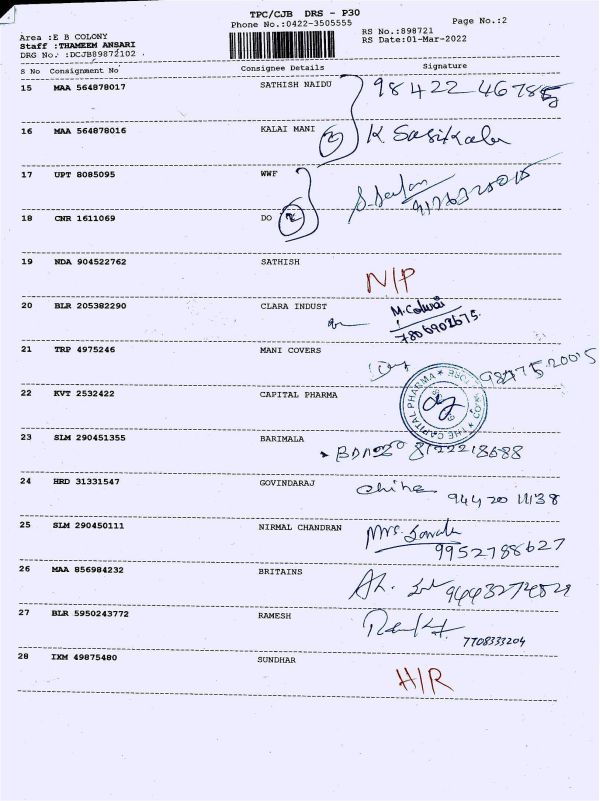 TPC/CJB DRS - P30
Phone No.:0422-3505555
Page No.:2
Area : E B COLONY
Staff :THAMEEM ANSARI
DRG No. :DCJB89872102
RS No.:898721
RS Date:01-Mar-2022
S No Consignment No Consignee Details Signature
15 MAA 564878017 SATHISH NAIDU
16 MAA 564878016 KALAI MANI 2 K. Sasikala
17 UPT 8085095 WWF
18 CNR 1611069 DO 2
19 NDA 904522762 SATHISH N/P
20 BLR 205382290 CLARA INDUST
7806902675.
21 TRP 4975246 MANI COVERS
22 KVT 2532422 CAPITAL PHARMA THE CAPITAL PHARMA
23 SLM 290451355 BARIMALA 8122218688
24 HRD 31331547 GOVINDARAJ
94420 11138
25 SLM 290450111 NIRMAL CHANDRAN Mrs.
9952788627
26 MAA 856984232 BRITAINS
27 BLR 5950243772 RAMESH
7708333204
28 IXM 49875480 SUNDHAR H/R